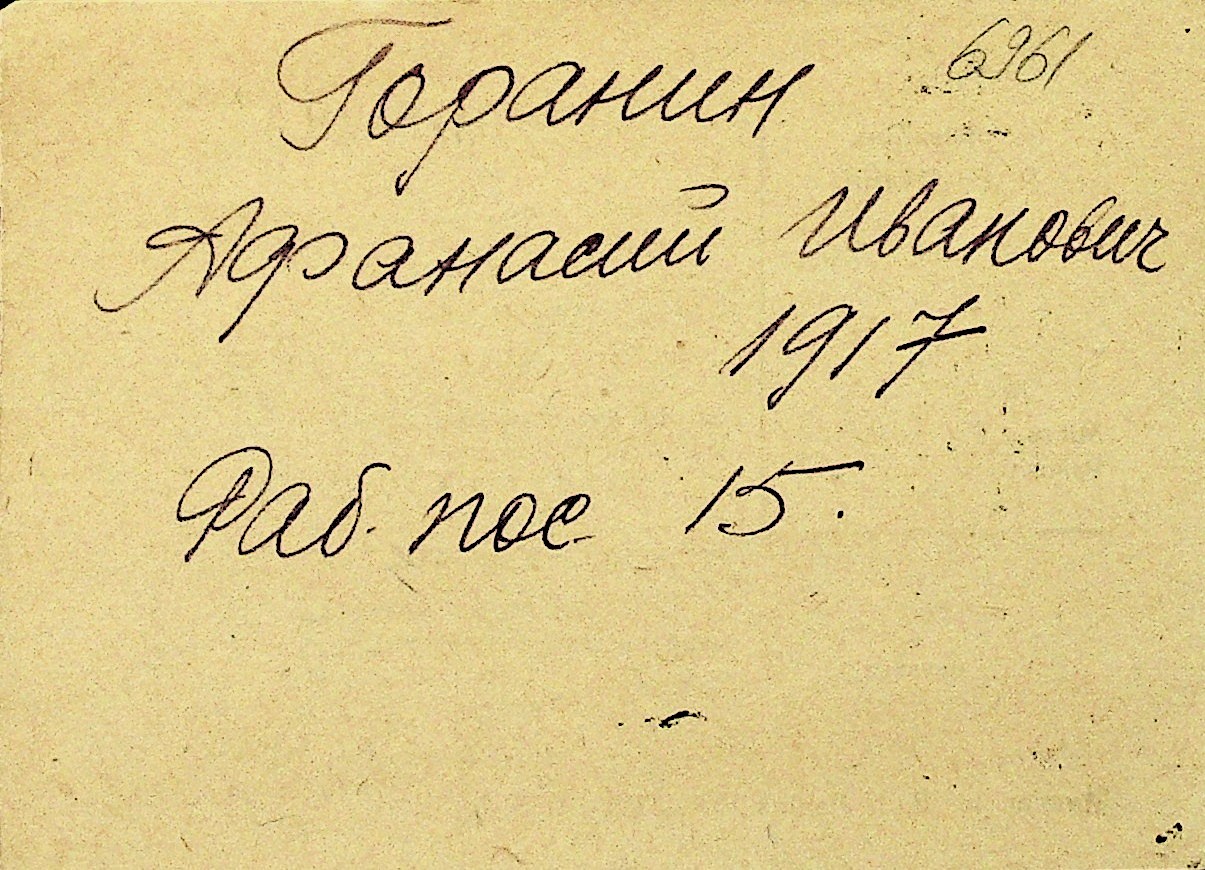 6961
Горанин
Афанасий Иванович
1917
Раб. пос. 15.